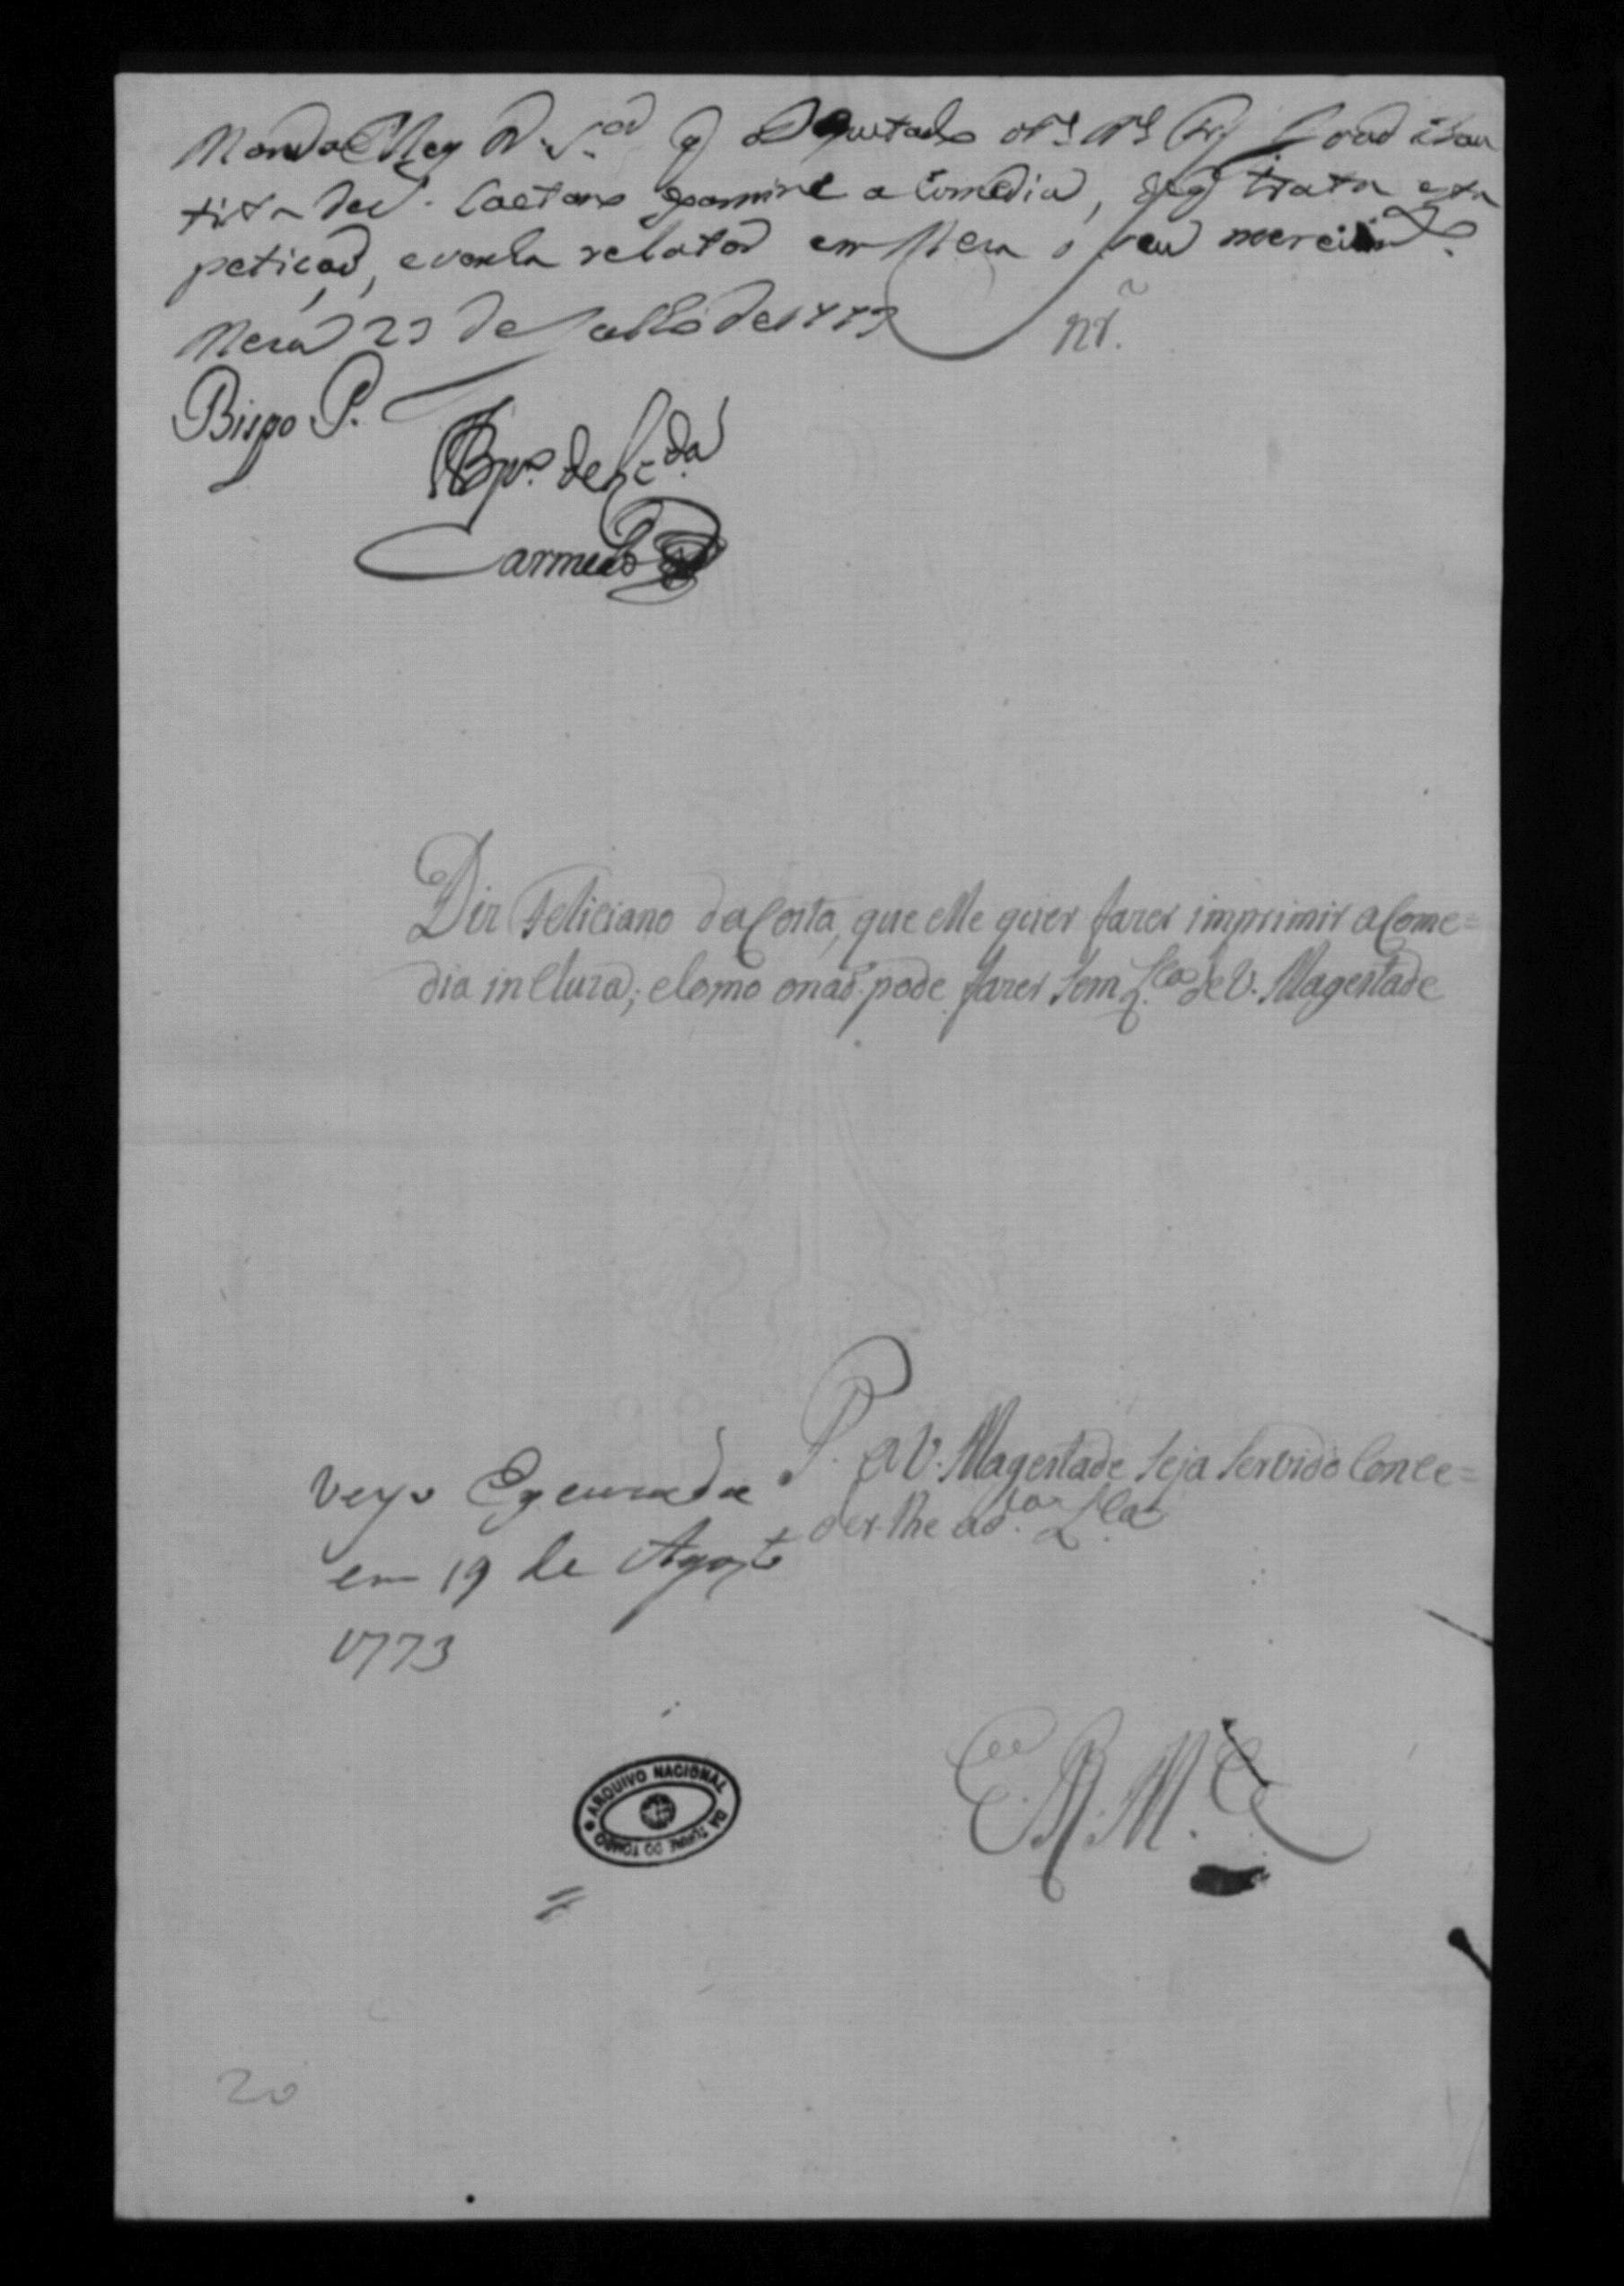 Manda ElRey N. S.or q o Deputado M.e Fr. Joaõ Bau
tista de S. Caetano examine a Comedia, de q trata esta
petiçaõ, e venha relatar em Meza o seu merecim.to.
Meza 23 de Julho de 1773
Bispo P.
Carmelo
Diz Feliciano da Costa, que elle quer fazer imprimir a Come=
dia incluza; e como o naõ pode fazer sem L.ça de V. Magestade
P. a V. Magestade seja servido conce=
der-lhe a d.ta L.ça
Veyo Ezcuzada
em 19 de Agosto
1773
E. R. M.ce
ARQUIVO NACIONAL DA TORRE DO TOMBO
20